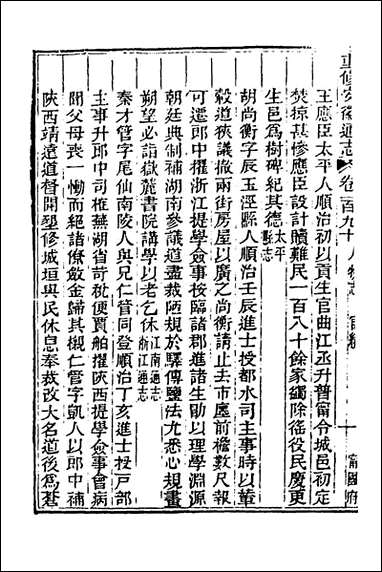 重修安徽通志 卷一百九十 人物志 宦績 寧國府
王應臣太平人順治初以貢生官曲江丞升普甯令城邑初定
焚掠甚慘應臣設計贖難民一百八十餘家蠲除徭役民慶更
生邑爲樹碑紀其德太平縣志
胡尚衡字辰玉涇縣人順治壬辰進士授都水司主事時以輦
轂道狹議撤兩街房屋以廣之尚衡請止去市廛前檐數尺報
可遷郎中擢浙江提學僉事按臨諸郡進諸生勖以理學淵源
朝廷典制補湖南參議道盡裁陋規於驛傳鹽法尤悉心規畫
朔望必詣嶽麓書院講學以老乞休江南通志浙江通志
秦才管字尾仙南陵人與兄仁管同登順治丁亥進士授戸部
主事升郎中司榷蕪湖省苛枇便賈舶擢陝西提學僉事會病
聞父母喪一慟而絕諸僚斂金歸其櫬仁管字凱人以郎中補
陝西靖遠道督開墾修城垣與民休息奉裁改大名道後爲甚